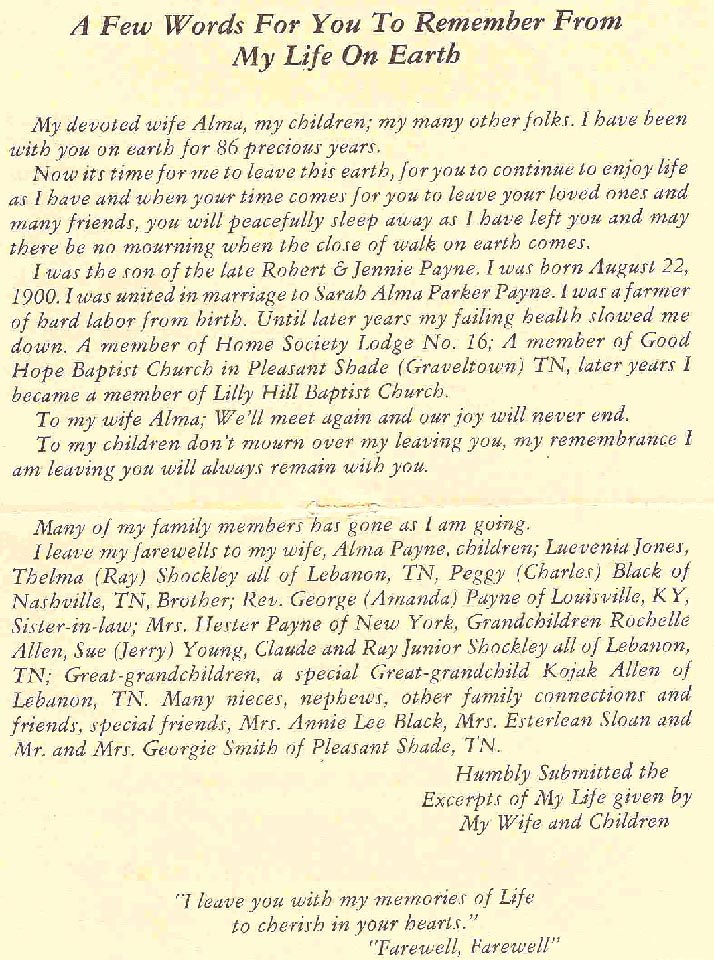 A Few Words For You To Remember From
My Life On Earth
My devoted wife Alma, my children; my many other folks. I have been
with you on earth for 86 precious years.
Now its time for me to leave this earth, for you to continue to enjoy life
as I have and when your time comes for you to leave your loved ones and
many friends, you will peacefully sleep away as I have left you and may
there be no mourning when the close of walk on earth comes.
I was the son of the late Robert & Jennie Payne. I was born August 22,
1900. I was united in marriage to Sarah Alma Parker Payne. I was a farmer
of hard labor from birth. Until later years my failing health slowed me
down. A member of Home Society Lodge No. 16; A member of Good
Hope Baptist Church in Pleasant Shade (Graveltown) TN, later years I
became a member of Lilly Hill Baptist Church.
To my wife Alma; We'll meet again and our joy will never end.
To my children don't mourn over my leaving you, my remembrance I
am leaving you will always remain with you.
Many of my family members has gone as I am going.
I leave my farewells to my wife, Alma Payne, children; Luevenia Jones,
Thelma (Ray) Shockley all of Lebanon, TN, Peggy (Charles) Black of
Nashville, TN, Brother; Rev. George (Amanda) Payne of Louisville, KY,
Sister-in-law; Mrs. Hester Payne of New York, Grandchildren Rochelle
Allen, Sue (Jerry) Young, Claude and Ray Junior Shockley all of Lebanon,
TN; Great-grandchildren, a special Great-grandchild Kojak Allen of
Lebanon, TN. Many nieces, nephews, other family connections and
friends, special friends, Mrs. Annie Lee Black, Mrs. Esterlean Sloan and
Mr. and Mrs. Georgie Smith of Pleasant Shade, TN.
Humbly Submitted the
Excerpts of My Life given by
My Wife and Children
"I leave you with my memories of Life
to cherish in your hearts."
"Farewell, Farewell"